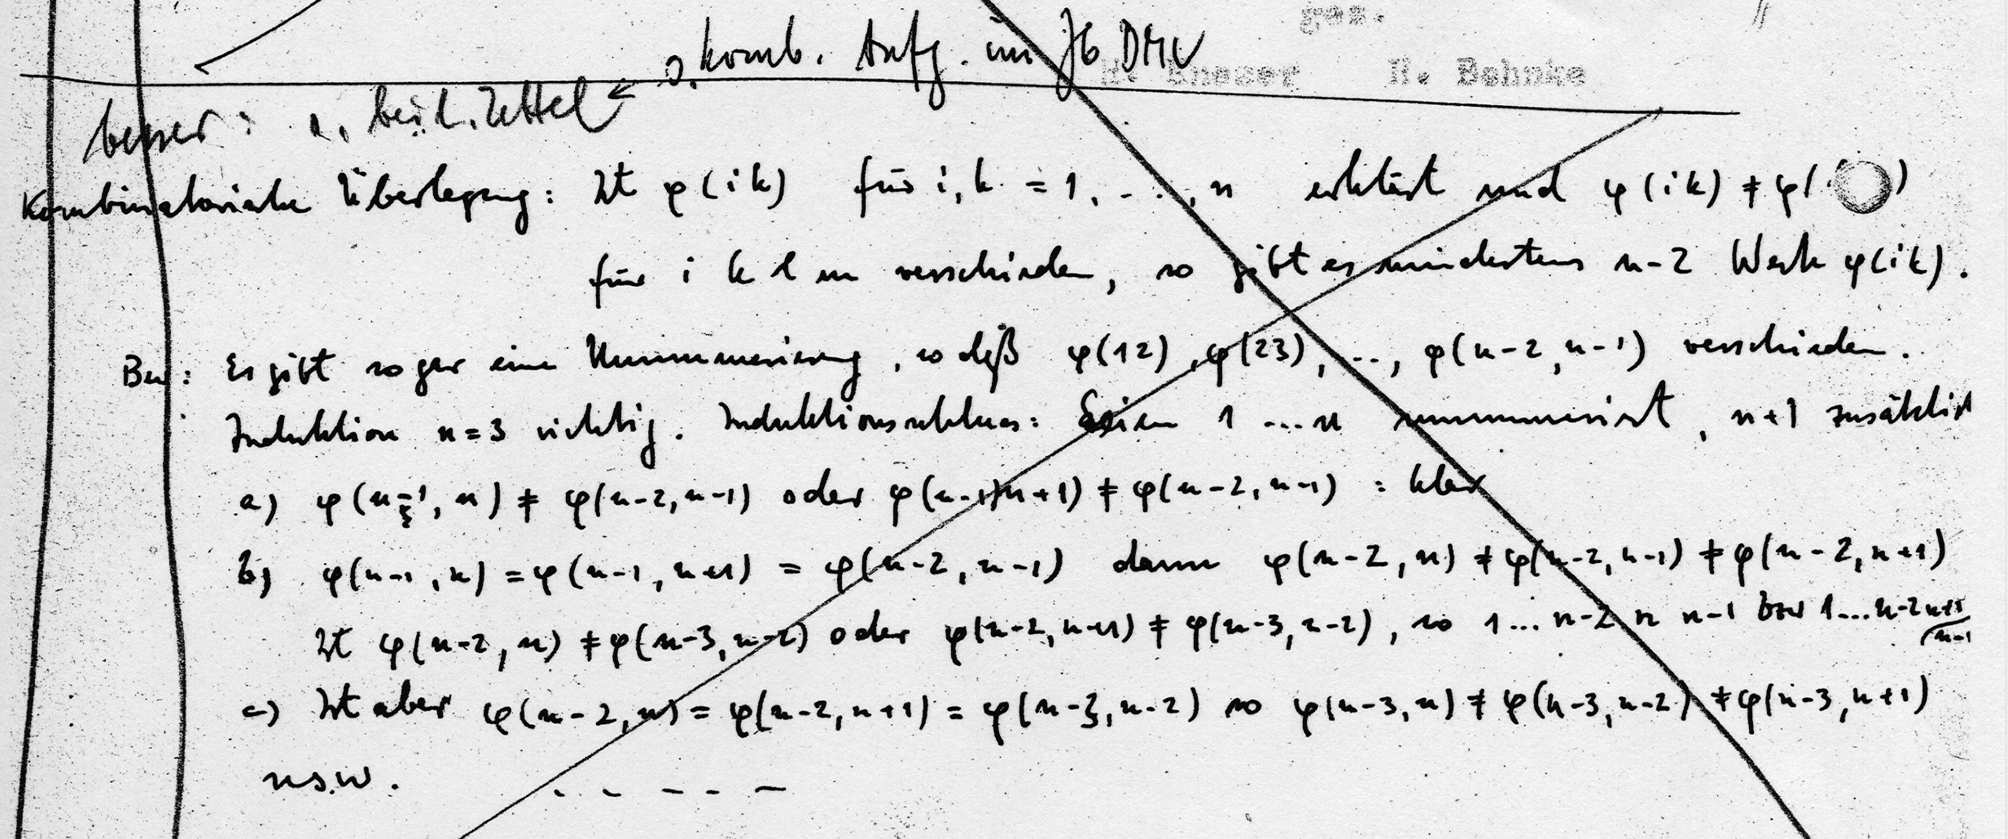 gez.
s. komb. Aufg. im Jb DMV
H. Kneser H. Behnke
besser: s. beil. Zettel ←
Kombinatorische Überlegung: Ist φ(ik) für i,k = 1, ..., n erklärt und φ(ik) ≠ φ( )
für i k l m verschieden, so gibt es mindestens n-2 Werte φ(ik).
Bew: Es gibt sogar eine Nummerierung, so daß φ(12), φ(23), .., φ(n-2, n-1) verschieden.
Induktion n=3 richtig. Induktionsschluss: Seien 1 ... n nummeriert, n+1 zusätzlich
a) φ(n-1, n) ≠ φ(n-2, n-1) oder φ(n-1, n+1) ≠ φ(n-2, n-1) : klar
b) φ(n-1, n) = φ(n-1, n+1) = φ(n-2, n-1) dann φ(n-2, n) ≠ φ(n-2, n-1) ≠ φ(n-2, n+1)
Ist φ(n-2, n) ≠ φ(n-3, n-2) oder φ(n-2, n+1) ≠ φ(n-3, n-2), so 1 ... n-2 n n-1 bzw 1 ... n-2 n+1 n-1
c) Ist aber φ(n-2, n) = φ(n-2, n+1) = φ(n-3, n-2) so φ(n-3, n) ≠ φ(n-3, n-2) ≠ φ(n-3, n+1)
usw. - - - - -